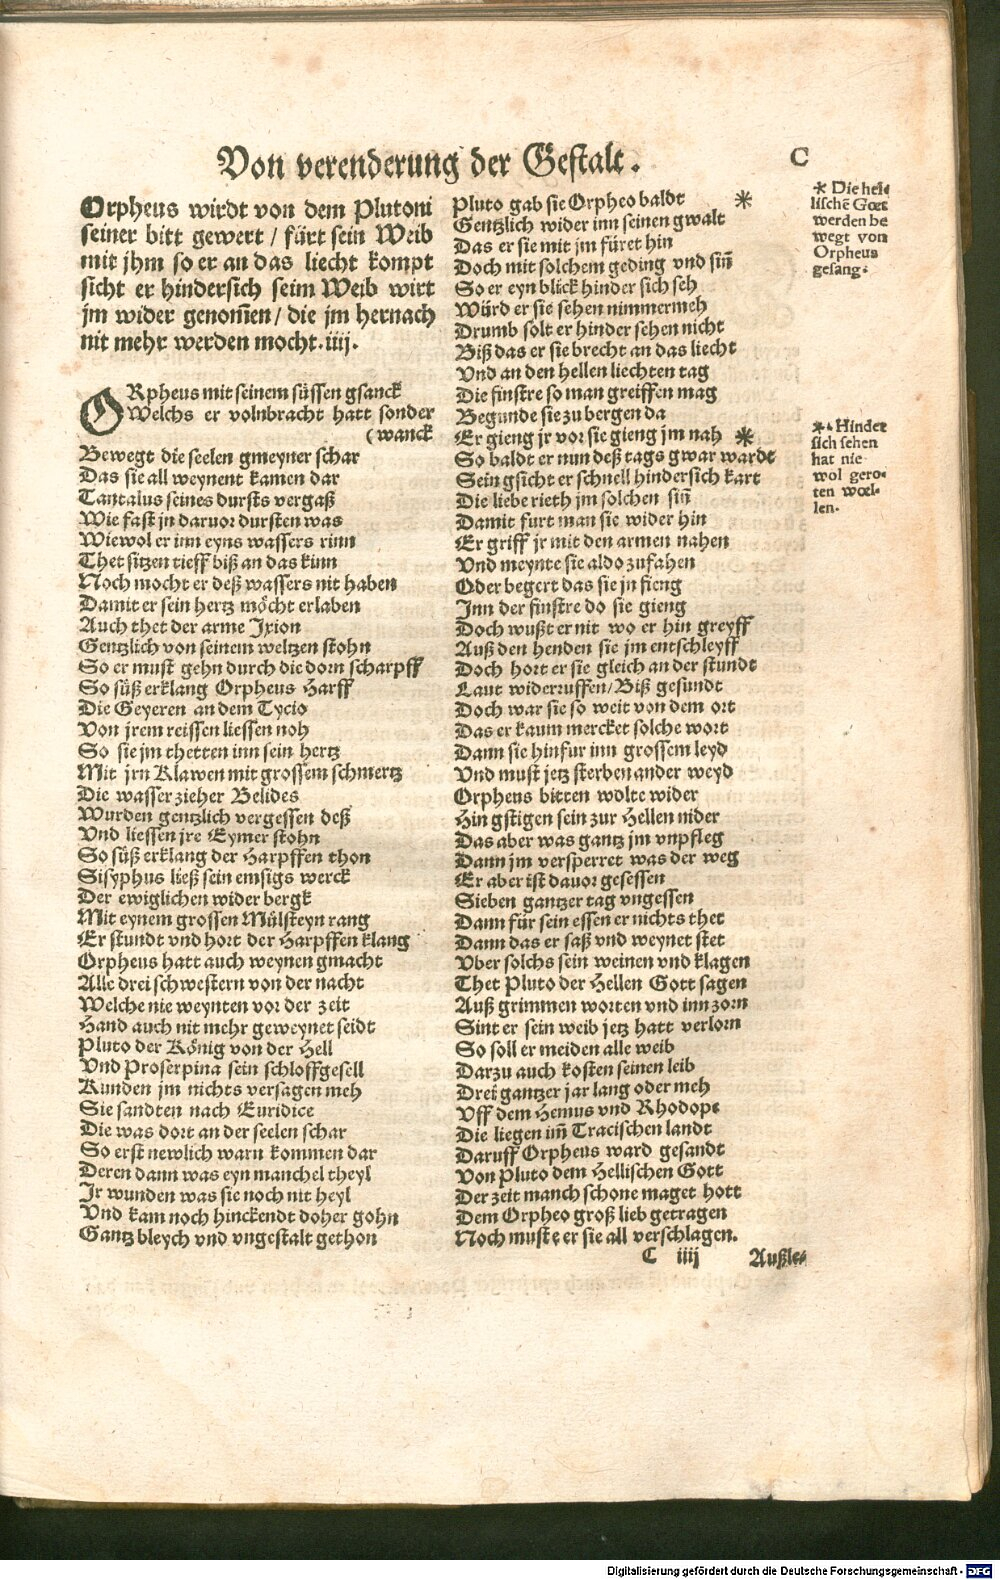 Von verenderung der Gestalt.
C
Orpheus wirdt von dem Plutoni
seiner bitt gewert / fürt sein Weib
mit jhm so er an das liecht kompt
sicht er hindersich seim Weib wirt
jm wider genom̃en / die jm hernach
nit mehr werden mocht. iiij.
ORpheus mit seinem süssen gsanck
Welchs er volnbracht hatt sonder
(wanck
Bewegt die seelen gmeyner schar
Das sie all weynent kamen dar
Tantalus seines dursts vergaß
Wie fast jn daruor dursten was
Wiewol er inn eyns wassers rinn
Thet sitzen tieff biß an das kinn
Noch mocht er deß wassers nit haben
Damit er sein hertz möcht erlaben
Auch thet der arme Jxion
Gentzlich von seinem weltzen stohn
So er must gehn durch die dorn scharpff
So süß erklang Orpheus Harff
Die Geyeren an dem Tycio
Von jrem reissen liessen noh
So sie jm thetten inn sein hertz
Mit jrn Klawen mit grossem schmertz
Die wasser zieher Belides
Wurden gentzlich vergessen deß
Vnd liessen jre Eymer stohn
So süß erklang der Harpffen thon
Sisyphus ließ sein emsigs werck
Der ewiglichen wider bergk
Mit eynem grossen Mülsteyn rang
Er stundt vnd hort der Harpffen klang
Orpheus hatt auch weynen gmacht
Alle drei schwestern von der nacht
Welche nie weynten vor der zeit
Hand auch nit mehr geweynet seidt
Pluto der König von der Hell
Vnd Proserpina sein schloffgesell
Kunden jm nichts versagen meh
Sie sandten nach Euridice
Die was dort an der seelen schar
So erst newlich warn kommen dar
Deren dann was eyn manchel theyl
Jr wunden was sie noch nit heyl
Vnd kam noch hinckendt doher gohn
Gantz bleych vnd vngestalt gethon
Pluto gab sie Orpheo baldt *
Gentzlich wider inn seinen gwalt
Das er sie mit jm füret hin
Doch mit solchem geding vnd sin̄
So er eyn blick hinder sich seh
Würd er sie sehen nimmermeh
Drumb solt er hinder sehen nicht
Biß das er sie brecht an das liecht
Vnd an den hellen liechten tag
Die finstre so man greiffen mag
Begunde sie zu bergen da
Er gieng jr vor sie gieng jm nah *
So baldt er nun deß tags gwar wardt
Sein gsicht er schnell hindersich kart
Die liebe rieth jm solchen sin̄
Damit furt man sie wider hin
Er griff jr mit den armen nahen
Vnd meynte sie aldo zufahen
Oder begert das sie jn fieng
Jnn der finstre do sie gieng
Doch wußt er nit wo er hin greyff
Auß den henden sie jm entschleyff
Doch hort er sie gleich an der stundt
Laut widerruffen / Biß gesundt
Doch war sie so weit von dem ort
Das er kaum mercket solche wort
Dann sie hinfur inn grossem leyd
Vnd must jetz sterben ander weyd
Orpheus bitten wolte wider
Hin gstigen sein zur Hellen nider
Das aber was gantz jm vnpfleg
Dann jm versperret was der weg
Er aber ist dauor gesessen
Sieben gantzer tag vngessen
Dann für sein essen er nichts thet
Dann das er saß vnd weynet stet
Vber solchs sein weinen vnd klagen
Thet Pluto der Hellen Gott sagen
Auß grimmen worten vnd inn zorn
Sint er sein weib jetz hatt verlorn
So soll er meiden alle weib
Darzu auch kosten seinen leib
Drei gantzer jar lang oder meh
Vff dem Hemus vnd Rhodope
Die liegen im̄ Tracischen landt
Daruff Orpheus ward gesandt
Von Pluto dem Hellischen Gott
Der zeit manch schone maget hott
Dem Orpheo groß lieb getragen
Noch muste er sie all verschlagen.
C iiij
Außle-
* Die hel-
lischē Gött
werden be
wegt von
Orpheus
gesang.
** Hinder
sich sehen
hat nie
wol gero-
ten wœl-
len.
Digitalisierung gefördert durch die Deutsche Forschungsgemeinschaft - DFG